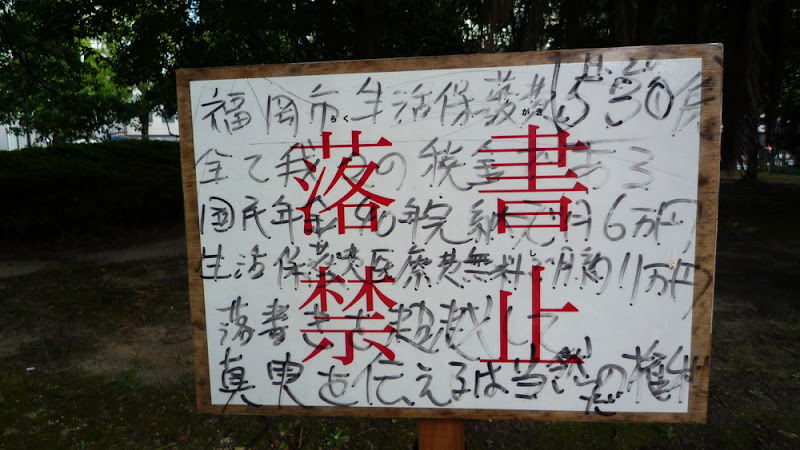 落書
禁止
福岡市生活保護費
全て我々の税金である
国民年金40年完納 月6万円
生活保護費医療費無料 月約11万円
落書きを超越して
真実を伝えるは当然の権利
だ